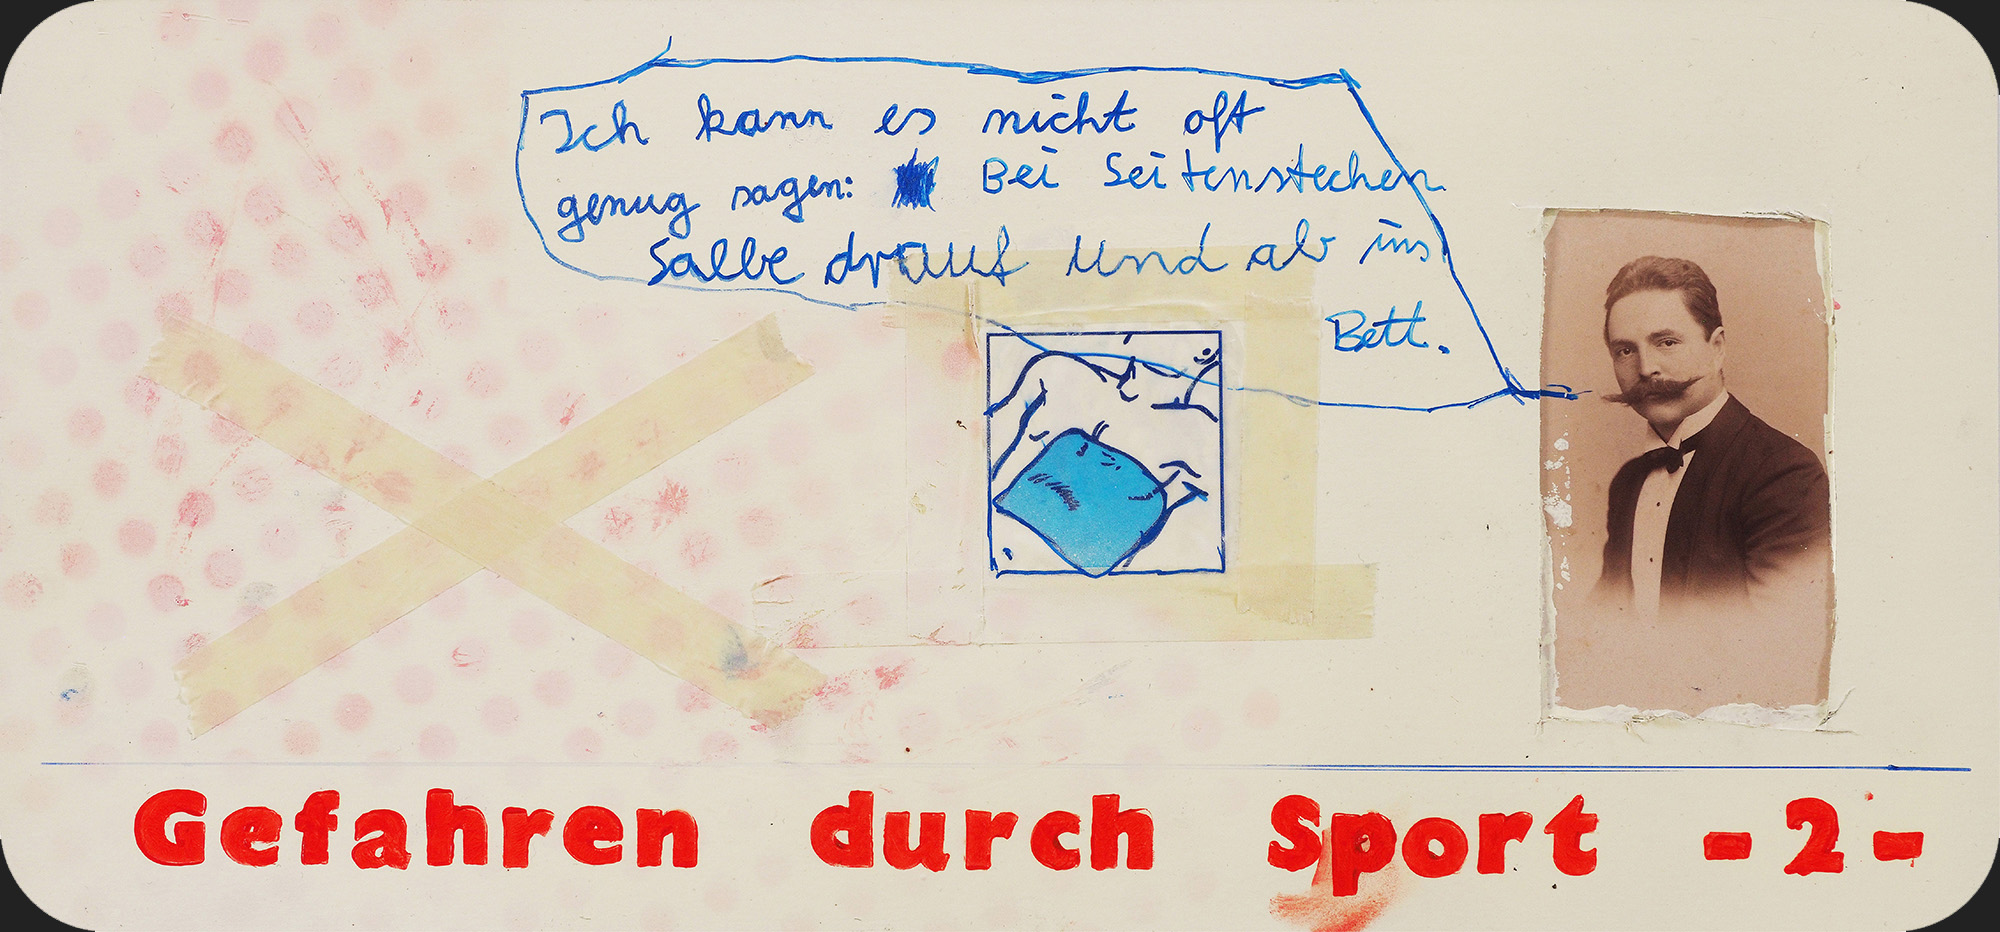 Ich kann es nicht oft
genug sagen: Bei Seitenstechen
Salbe drauf und ab ins
Bett.
Gefahren durch Sport - 2 -